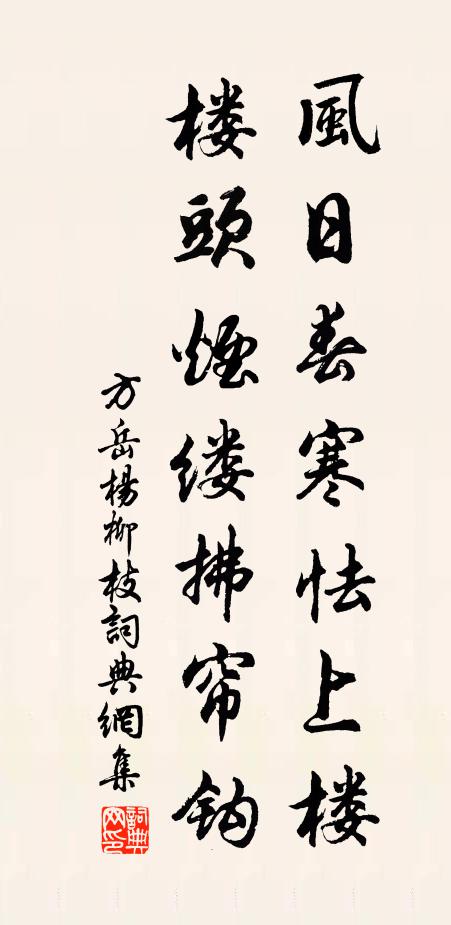 風日春寒怯上楼
楼頭煙缕拂帘鈎
方岳楊柳枝詞典網集
詞典網印